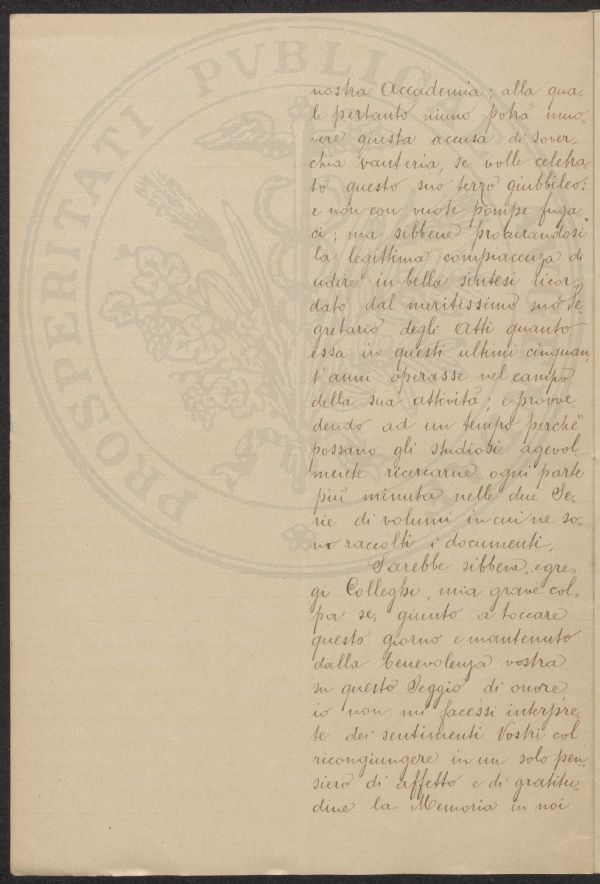 PROSPERITATI PVBLICAE
nostra Accademia; alla qua=
le pertanto niuno potrà muo=
vere giusta accusa di sover,
chia vanteria, se volle celebra
to questo suo terzo giubbileo:
e non con vuote pompe fuga
ci; ma sibbene procurandosi
la legittima compiacenza di
udire in bella sintesi ricor
dato dal meritissimo suo Se
gretario degli Atti quanto
essa in questi ultimi cinquan
t'anni operasse nel campo
della sua attività; e provve
dendo ad un tempo perchè
possano gli studiosi agevol
mente ricercarne ogni parte
più minuta nelle due Se,
rie di volumi in cui ne so,
no raccolti i documenti.
Sarebbe sibbene, egre,
gi Colleghi, mia grave col,
pa se, giunto a toccare
questo giorno e mantenuto
dalla benevolenza vostra
su questo Seggio di onore
io non mi facessi interpre,
te dei sentimenti Vostri col
ricongiungere in un solo pen,
siero di affetto e di gratitu,
dine la Memoria in noi